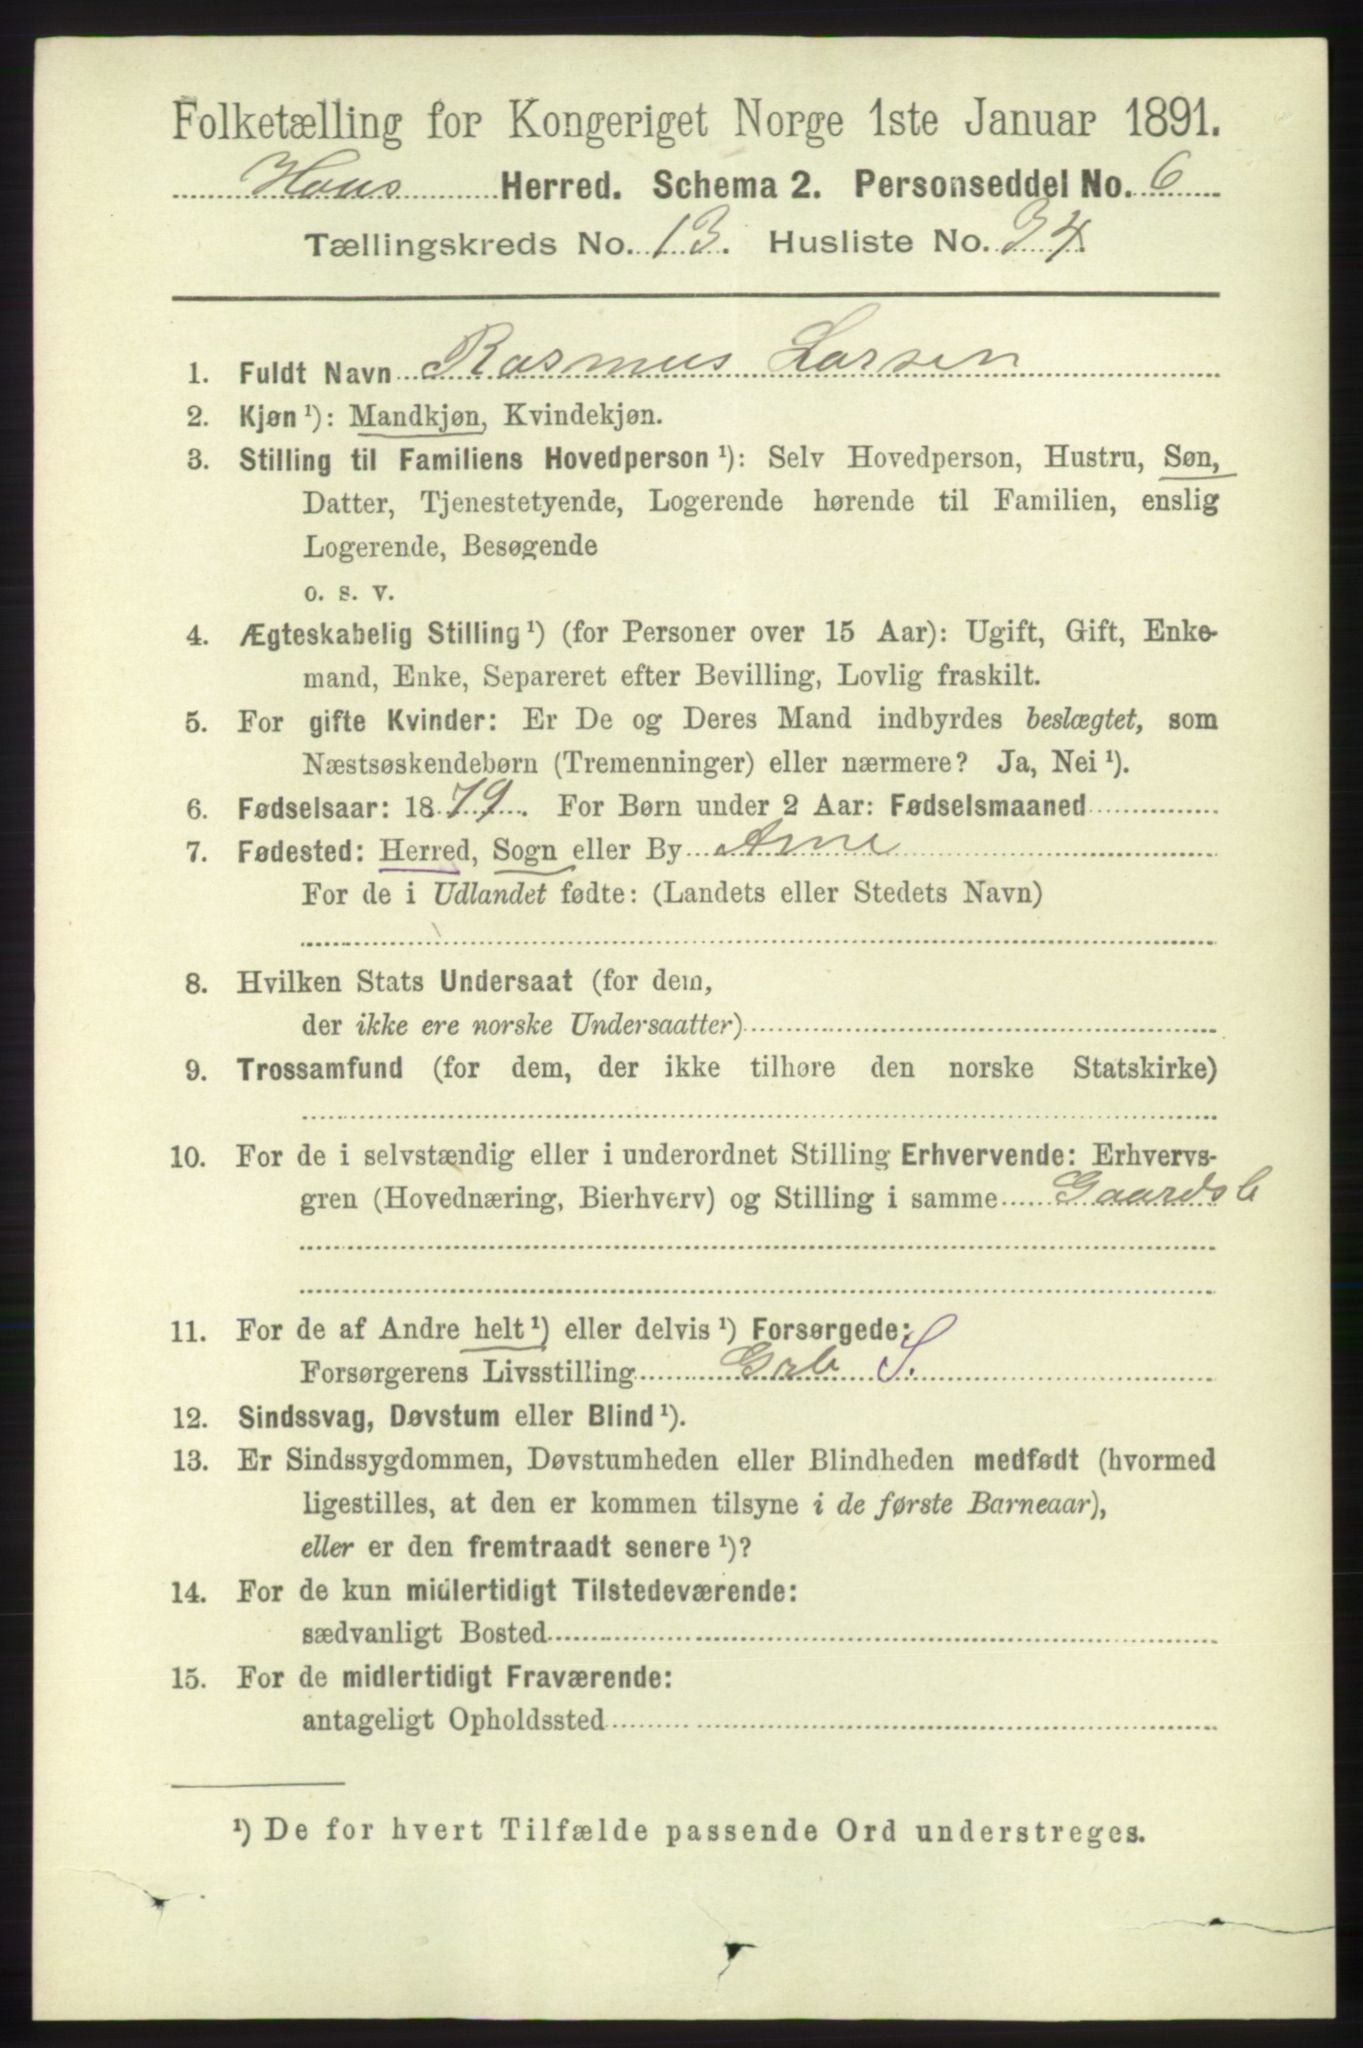 Folketælling for Kongeriget Norge 1ste Januar 1891.
Haus Herred. Schema 2. Personseddel No. 6
Tællingskreds No. 13. Husliste No. 34
1. Fuldt Navn Rasmus Larsen
2. Kjøn ¹): Mandkjøn, Kvindekjøn.
3. Stilling til Familiens Hovedperson ¹): Selv Hovedperson, Hustru, Søn,
Datter, Tjenestetyende, Logerende hørende til Familien, enslig
Logerende, Besøgende
o. s. v.
4. Ægteskabelig Stilling ¹) (for Personer over 15 Aar): Ugift, Gift, Enke-
mand, Enke, Separeret efter Bevilling, Lovlig fraskilt.
5. For gifte Kvinder: Er De og Deres Mand indbyrdes beslægtet, som
Næstsøskendebørn (Tremenninger) eller nærmere? Ja, Nei ¹).
6. Fødselsaar: 1879. For Børn under 2 Aar: Fødselsmaaned
7. Fødested: Herred, Sogn eller By Arne
For de i Udlandet fødte: (Landets eller Stedets Navn)
8. Hvilken Stats Undersaat (for dem,
der ikke ere norske Undersaatter)
9. Trossamfund (for dem, der ikke tilhøre den norske Statskirke)
10. For de i selvstændig eller i underordnet Stilling Erhvervende: Erhvervs-
gren (Hovednæring, Bierhverv) og Stilling i samme Gaardsb
11. For de af Andre helt ¹) eller delvis ¹) Forsørgede:
Forsørgerens Livsstilling Grb S.
12. Sindssvag, Døvstum eller Blind ¹).
13. Er Sindssygdommen, Døvstumheden eller Blindheden medfødt (hvormed
ligestilles, at den er kommen tilsyne i de første Barneaar),
eller er den fremtraadt senere ¹)?
14. For de kun midlertidigt Tilstedeværende:
sædvanligt Bosted
15. For de midlertidigt Fraværende:
antageligt Opholdssted
¹) De for hvert Tilfælde passende Ord understreges.